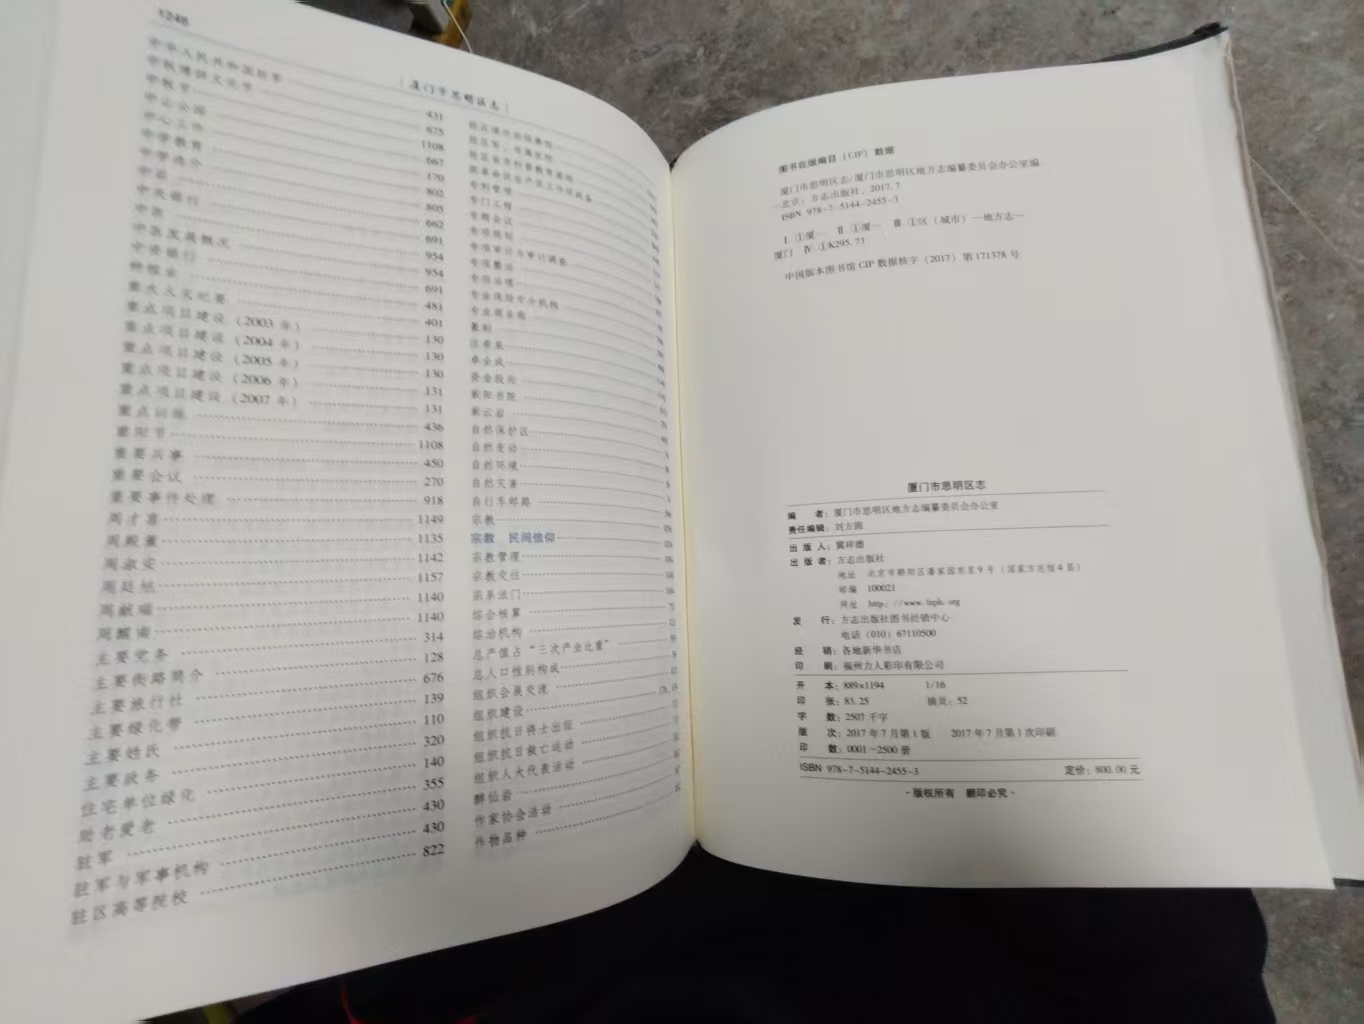 1248
厦门市思明区志
中秋博饼文化节
中秋节
中山公园
中心工作
中学教育
中学简介
中央银行
中医
中医发展概况
种植业
重大火灾纪要
重点项目建设（2003 年） 130
重点项目建设（2004 年） 130
重点项目建设（2005 年） 130
重点项目建设（2006 年） 131
重点项目建设（2007 年） 131
重点训练 436
重阳节 1108
重要兵事 450
重要会议 270
重要事件处理 918
周才喜 1149
周殿薰 1135
周淑安 1142
周廷旭 1157
周献瑞 1140
周醒南 1140
主要党务 314
主要街路简介 128
主要旅行社 676
主要绿化带 139
主要姓氏 110
主要政务 320
住宅单位绿化 140
助老爱老 355
驻军 430
驻军与军事机构 430
驻区高等院校 822
专利管理
专门工程
专题会议
专项规划
专项审计与审计调查
专项整治
专项治理
专业保险中介机构
专业商业街
篆刻
庄希泉
卓全成
资金投向
紫阳书院
紫云岩
自然保护区
自然变动
自然环境
自然灾害
自行车邮路
宗教
宗教 民间信仰
宗教管理
宗教交往
宗系法门
综合核算
综治机构
总产值占“三次产业比重”
总人口性别构成
组织会展交流
组织建设
组织抗日将士出征
组织抗日救亡运动
组织人大代表活动
醉仙岩
作家协会活动
作物品种
图书在版编目（CIP）数据
厦门市思明区志/厦门市思明区地方志编纂委员会办公室编.
—北京：方志出版社，2017.7
ISBN 978-7-5144-2455-3
Ⅰ ①厦… Ⅱ ①厦… Ⅲ ①区（城市）—地方志—
厦门 Ⅳ ①K295.73
中国版本图书馆 CIP 数据核字（2017）第 171378 号
厦门市思明区志
编 者：厦门市思明区地方志编纂委员会办公室
责任编辑：刘方圆
出 版 人：冀祥德
出 版 者：方志出版社
地址 北京市朝阳区潘家园东里9号（国家方志馆4层）
邮编 100021
网址 http：//www.fzph.org
发 行：方志出版社图书经销中心
电话（010）67110500
经 销：各地新华书店
印 刷：福州力人彩印有限公司
开 本：889×1194 1/16
印 张：83.25 插页：52
字 数：2507 千字
版 次：2017 年 7 月第 1 版 2017 年 7 月第 1 次印刷
印 数：0001～2500 册
ISBN 978-7-5144-2455-3 定价：800.00 元
·版权所有 翻印必究·